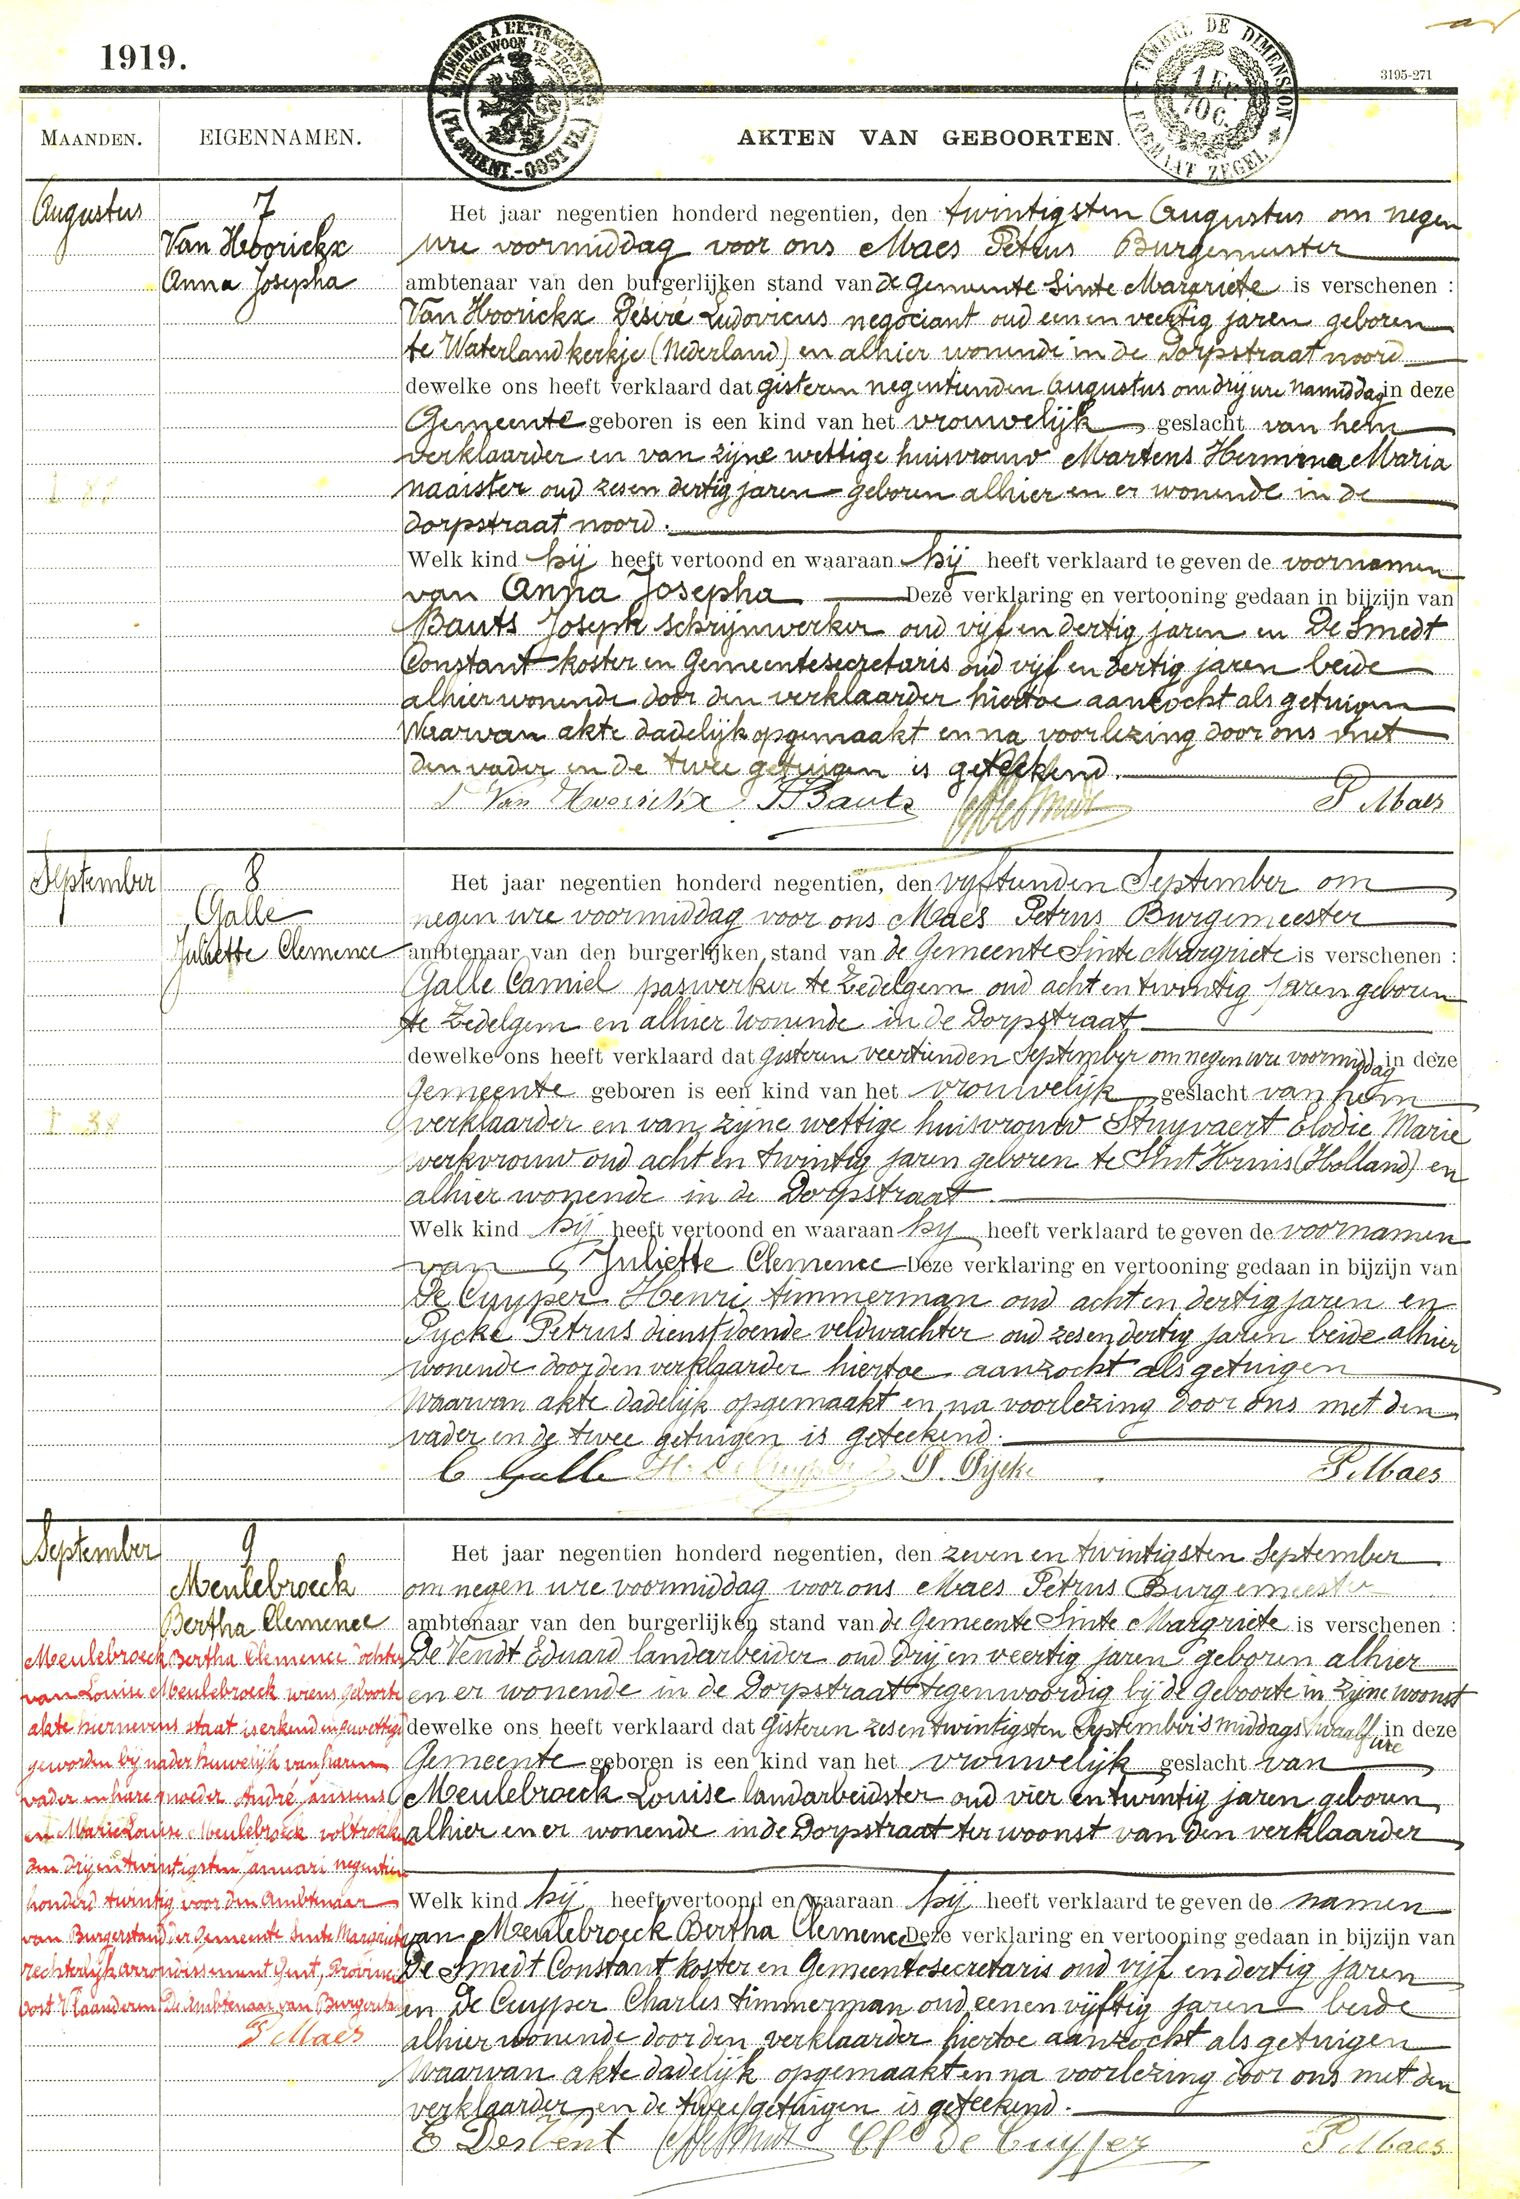 1919.
A TIMBRER A L'EXTRAORDINAIRE
BUITENGEWOON TE ZEGELEN
(FL. ORIENT.-OOST VL.)
TIMBRE DE DIMENSION
1 FR.
70 C.
FORMAAT ZEGEL
3195-271
MAANDEN.
EIGENNAMEN.
AKTEN VAN GEBOORTEN.
Augustus
7
Van Hoorickx
Anna Josepha
Het jaar negentien honderd negentien, den twintigsten Augustus om negen
ure voormiddag voor ons Maes Petrus Burgemeester
ambtenaar van den burgerlijken stand van de Gemeente Sinte Margriete is verschenen :
Van Hoorickx Désiré Ludovicus negociant oud een en veertig jaren geboren
te Waterlandkerkje (Nederland) en alhier wonende in de Dorpstraat noord
dewelke ons heeft verklaard dat gisteren negentienden Augustus om drij ure namiddag in deze
Gemeente geboren is een kind van het vrouwelijk geslacht van hem
verklaarder en van zijne wettige huisvrouw Martens Hermina Maria
naaister oud zes en dertig jaren geboren alhier en er wonende in de
dorpstraat noord.
Welk kind hij heeft vertoond en waaraan hij heeft verklaard te geven de voornamen
van Anna Josepha Deze verklaring en vertooning gedaan in bijzijn van
Bauts Joseph schrijnwerker oud vijf en dertig jaren en De Smedt
Constant koster en Gemeentesecretaris oud vijf en dertig jaren beide
alhier wonende door den verklaarder hiertoe aanzocht als getuigen
Waarvan akte dadelijk opgemaakt en na voorlezing door ons met
den vader en de twee getuigen is geteekend.
Van Hoorickx J Bauts P Maes
September
8
Galle
Juliette Clemence
Het jaar negentien honderd negentien, den vijftienden September om
negen ure voormiddag voor ons Maes Petrus Burgemeester
ambtenaar van den burgerlijken stand van de Gemeente Sinte Margriete is verschenen :
Galle Camiel paswerker te Zedelgem oud acht en twintig jaren geboren
te Zedelgem en alhier wonende in de Dorpstraat
dewelke ons heeft verklaard dat gisteren veertienden September om negen ure voormiddag in deze
Gemeente geboren is een kind van het vrouwelijk geslacht van hem
verklaarder en van zijne wettige huisvrouw Stuyvaert Elodie Marie
werkvrouw oud acht en twintig jaren geboren te Sint Kruis (Holland) en
alhier wonende in de Dorpstraat.
Welk kind hij heeft vertoond en waaraan hij heeft verklaard te geven de voornamen
van Juliette Clemence Deze verklaring en vertooning gedaan in bijzijn van
De Cuyper Henri timmerman oud acht en dertig jaren en
Pycke Petrus dienstdoende veldwachter oud zes en dertig jaren beide alhier
wonende door den verklaarder hiertoe aanzocht als getuigen
Waarvan akte dadelijk opgemaakt en na voorlezing door ons met den
vader en de twee getuigen is geteekend.
C Galle H. De Cuyper P. Pijcke P Maes
September
9
Meulebroeck
Bertha Clemence
Meulebroeck Bertha Clemence dochter
van Louise Meulebroeck wiens geboorte
akte hiernevens staat is erkend en gewettigd
geworden bij nader huwelijk van haren
vader en hare moeder André Janssens
en Marie Louise Meulebroeck voltrokken
den drij en twintigsten januari negentien
honderd twintig voor den Ambtenaar
van Burgerstand der Gemeente Sinte Margriete
rechterlijk arrondissement Gent, Provincie
Oost Vlaanderen De Ambtenaar van Burgersta
P Maes
Het jaar negentien honderd negentien, den zeven en twintigsten September
om negen ure voormiddag voor ons Maes Petrus Burgemeester
ambtenaar van den burgerlijken stand van de Gemeente Sinte Margriete is verschenen :
De Vendt Eduard landarbeider oud drij en veertig jaren geboren alhier
en er wonende in de Dorpstraat tegenwoordig bij de Geboorte in zijne woonst
dewelke ons heeft verklaard dat Gisteren zes en twintigsten September 's middags twaalf ure in deze
Gemeente geboren is een kind van het vrouwelijk geslacht van
Meulebroeck Louise landarbeidster oud vier en twintig jaren geboren
alhier en er wonende in de Dorpstraat ter woonst van den verklaarder
Welk kind hij heeft vertoond en waaraan hij heeft verklaard te geven de namen
van Meulebroeck Bertha Clemence Deze verklaring en vertooning gedaan in bijzijn van
De Smedt Constant koster en Gemeentesecretaris oud vijf en dertig jaren
en De Cuyper Charles timmerman oud een en vijftig jaren beide
alhier wonende door den verklaarder hiertoe aanzocht als getuigen
Waarvan akte dadelijk opgemaakt en na voorlezing door ons met den
verklaarder en de twee getuigen is geteekend.
E Desvent Ch De Cuyper P Maes